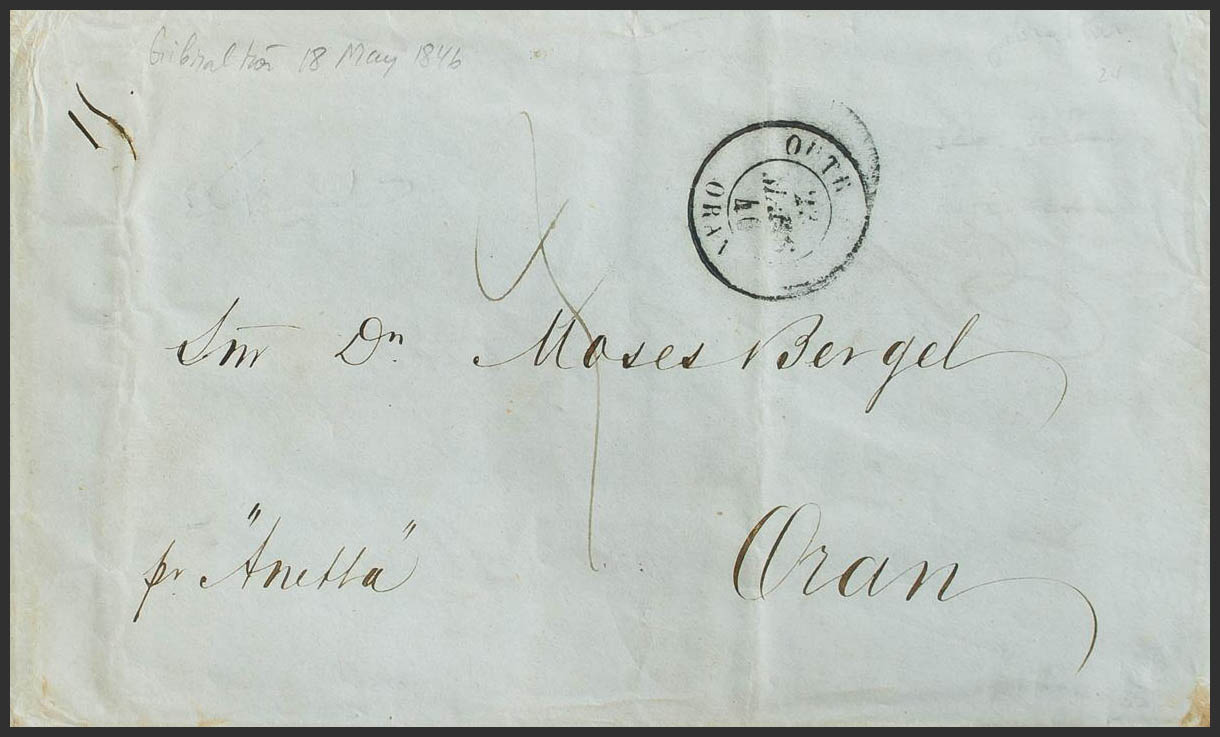 Gibraltar 18 May 1846
OUTE
ORAN
Snr Dn. Moses Bergel
pr. "Anetta"
Oran